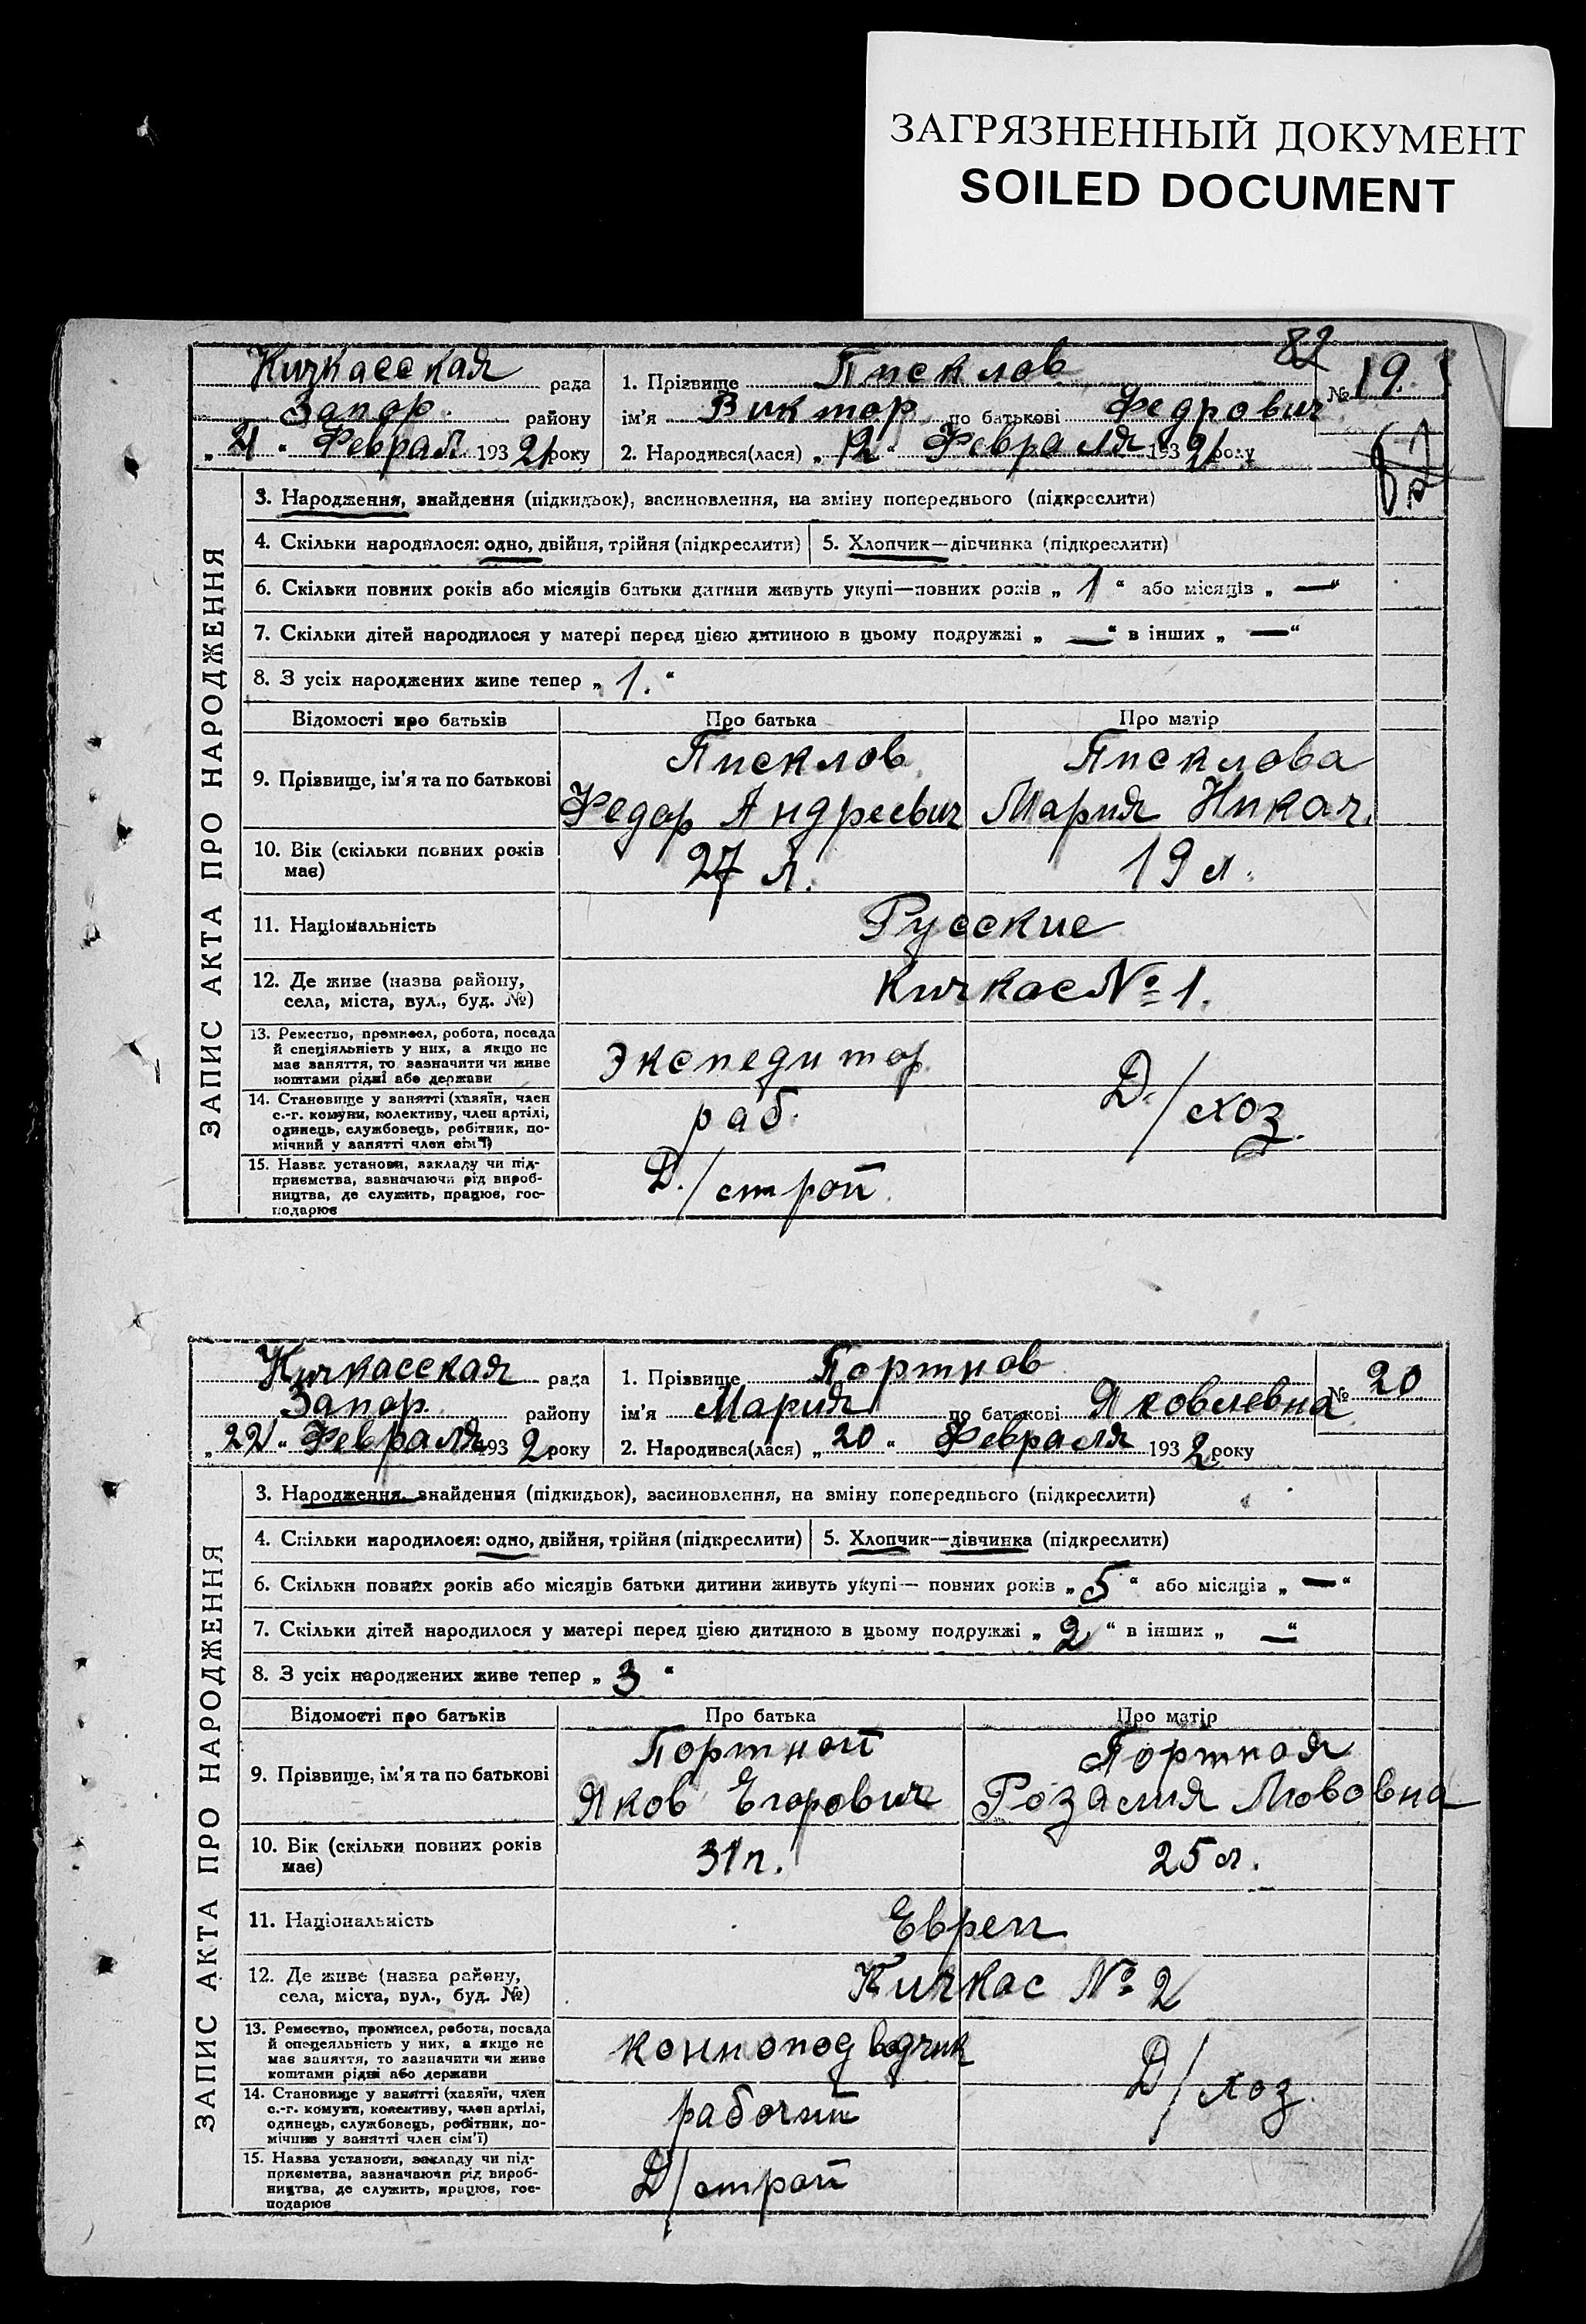 ЗАГРЯЗНЕННЫЙ ДОКУМЕНТ
SOILED DOCUMENT
82
Кичкасская рада
Запор. району
„21“ Феврал 1932 року
1. Прізвище Писклов
ім'я Виктор по батькові Федрович
2. Народився(лася) „12“ Февраля 1932 року
№ 19.
ЗАПИС АКТА ПРО НАРОДЖЕННЯ
3. Народження, знайдення (підкидьок), васиновлення, на зміну попереднього (підкреслити)
4. Скільки народилося: одно, двійня, трійня (підкреслити) 5. Хлопчик—дівчинка (підкреслити)
6. Скільки повних років або місяців батьки дитини живуть укупі—повних років „1“ або місяців „—“
7. Скільки дітей народилося у матері перед цією дитиною в цьому подружжі „—“ в інших „—“
8. З усіх народжених живе тепер „1.“
Відомості про батьків Про батька Про матір
9. Прізвище, ім'я та по батькові
Писклов Писклова
Федор Андреевич Мария Никол.
10. Вік (скільки повних років має) 27 л. 19 л.
11. Національність Русские
12. Де живе (назва району,
села, міста, вул., буд. №) Кичкас № 1.
13. Ремество, промисел, робота, посада
й спеціяльність у них, а якщо не
має заняття, то зазначити чи живе
коштами рідні або держави
Экспедитор. Д./хоз.
14. Становище у занятті (хазяїн, член
с.-г. комуни, колективу, член артілі,
одинець, службовець, робітник, по-
мічний у занятті член сім'ї)
раб.
15. Назва установи, закладу чи під-
приємства, зазначаючи рід вироб-
ництва, де служить, працює, гос-
подарює
Д./строй
Кичкасская рада
Запор. району
„22“ Февраля 1932 року
1. Прізвище Портнов
ім'я Мария по батькові Яковлевна
2. Народився(лася) „20“ Февраля 1932 року
№ 20
ЗАПИС АКТА ПРО НАРОДЖЕННЯ
3. Народження, знайдення (підкидьок), васиновлення, на зміну попереднього (підкреслити)
4. Скільки народилося: одно, двійня, трійня (підкреслити) 5. Хлопчик—дівчинка (підкреслити)
6. Скільки повних років або місяців батьки дитини живуть укупі— повних років „5“ або місяців „—“
7. Скільки дітей народилося у матері перед цією дитиною в цьому подружжі „2“ в інших „—“
8. З усіх народжених живе тепер „3“
Відомості про батьків Про батька Про матір
9. Прізвище, ім'я та по батькові
Портной Портная
Яков Егорович Розалия Лововна
10. Вік (скільки повних років має) 31 л. 25 л.
11. Національність Евреи
12. Де живе (назва району,
села, міста, вул., буд. №) Кичкас № 2
13. Ремество, промисел, робота, посада
й спецеяльність у них, а якщо не
має заняття, то зазначити чи живе
коштами рідні або держави
коннопод водчик Д/хоз.
14. Становище у занятті (хазяїн, член
с.-г. комуни, колективу, член артілі,
одинець, службовець, робітник, по-
мічний у занятті член сім'ї)
рабочий
15. Назва установи, закладу чи під-
приємства, зазначаючи рід вироб-
ництва, де служить, працює, гос-
подарює
Д/строй